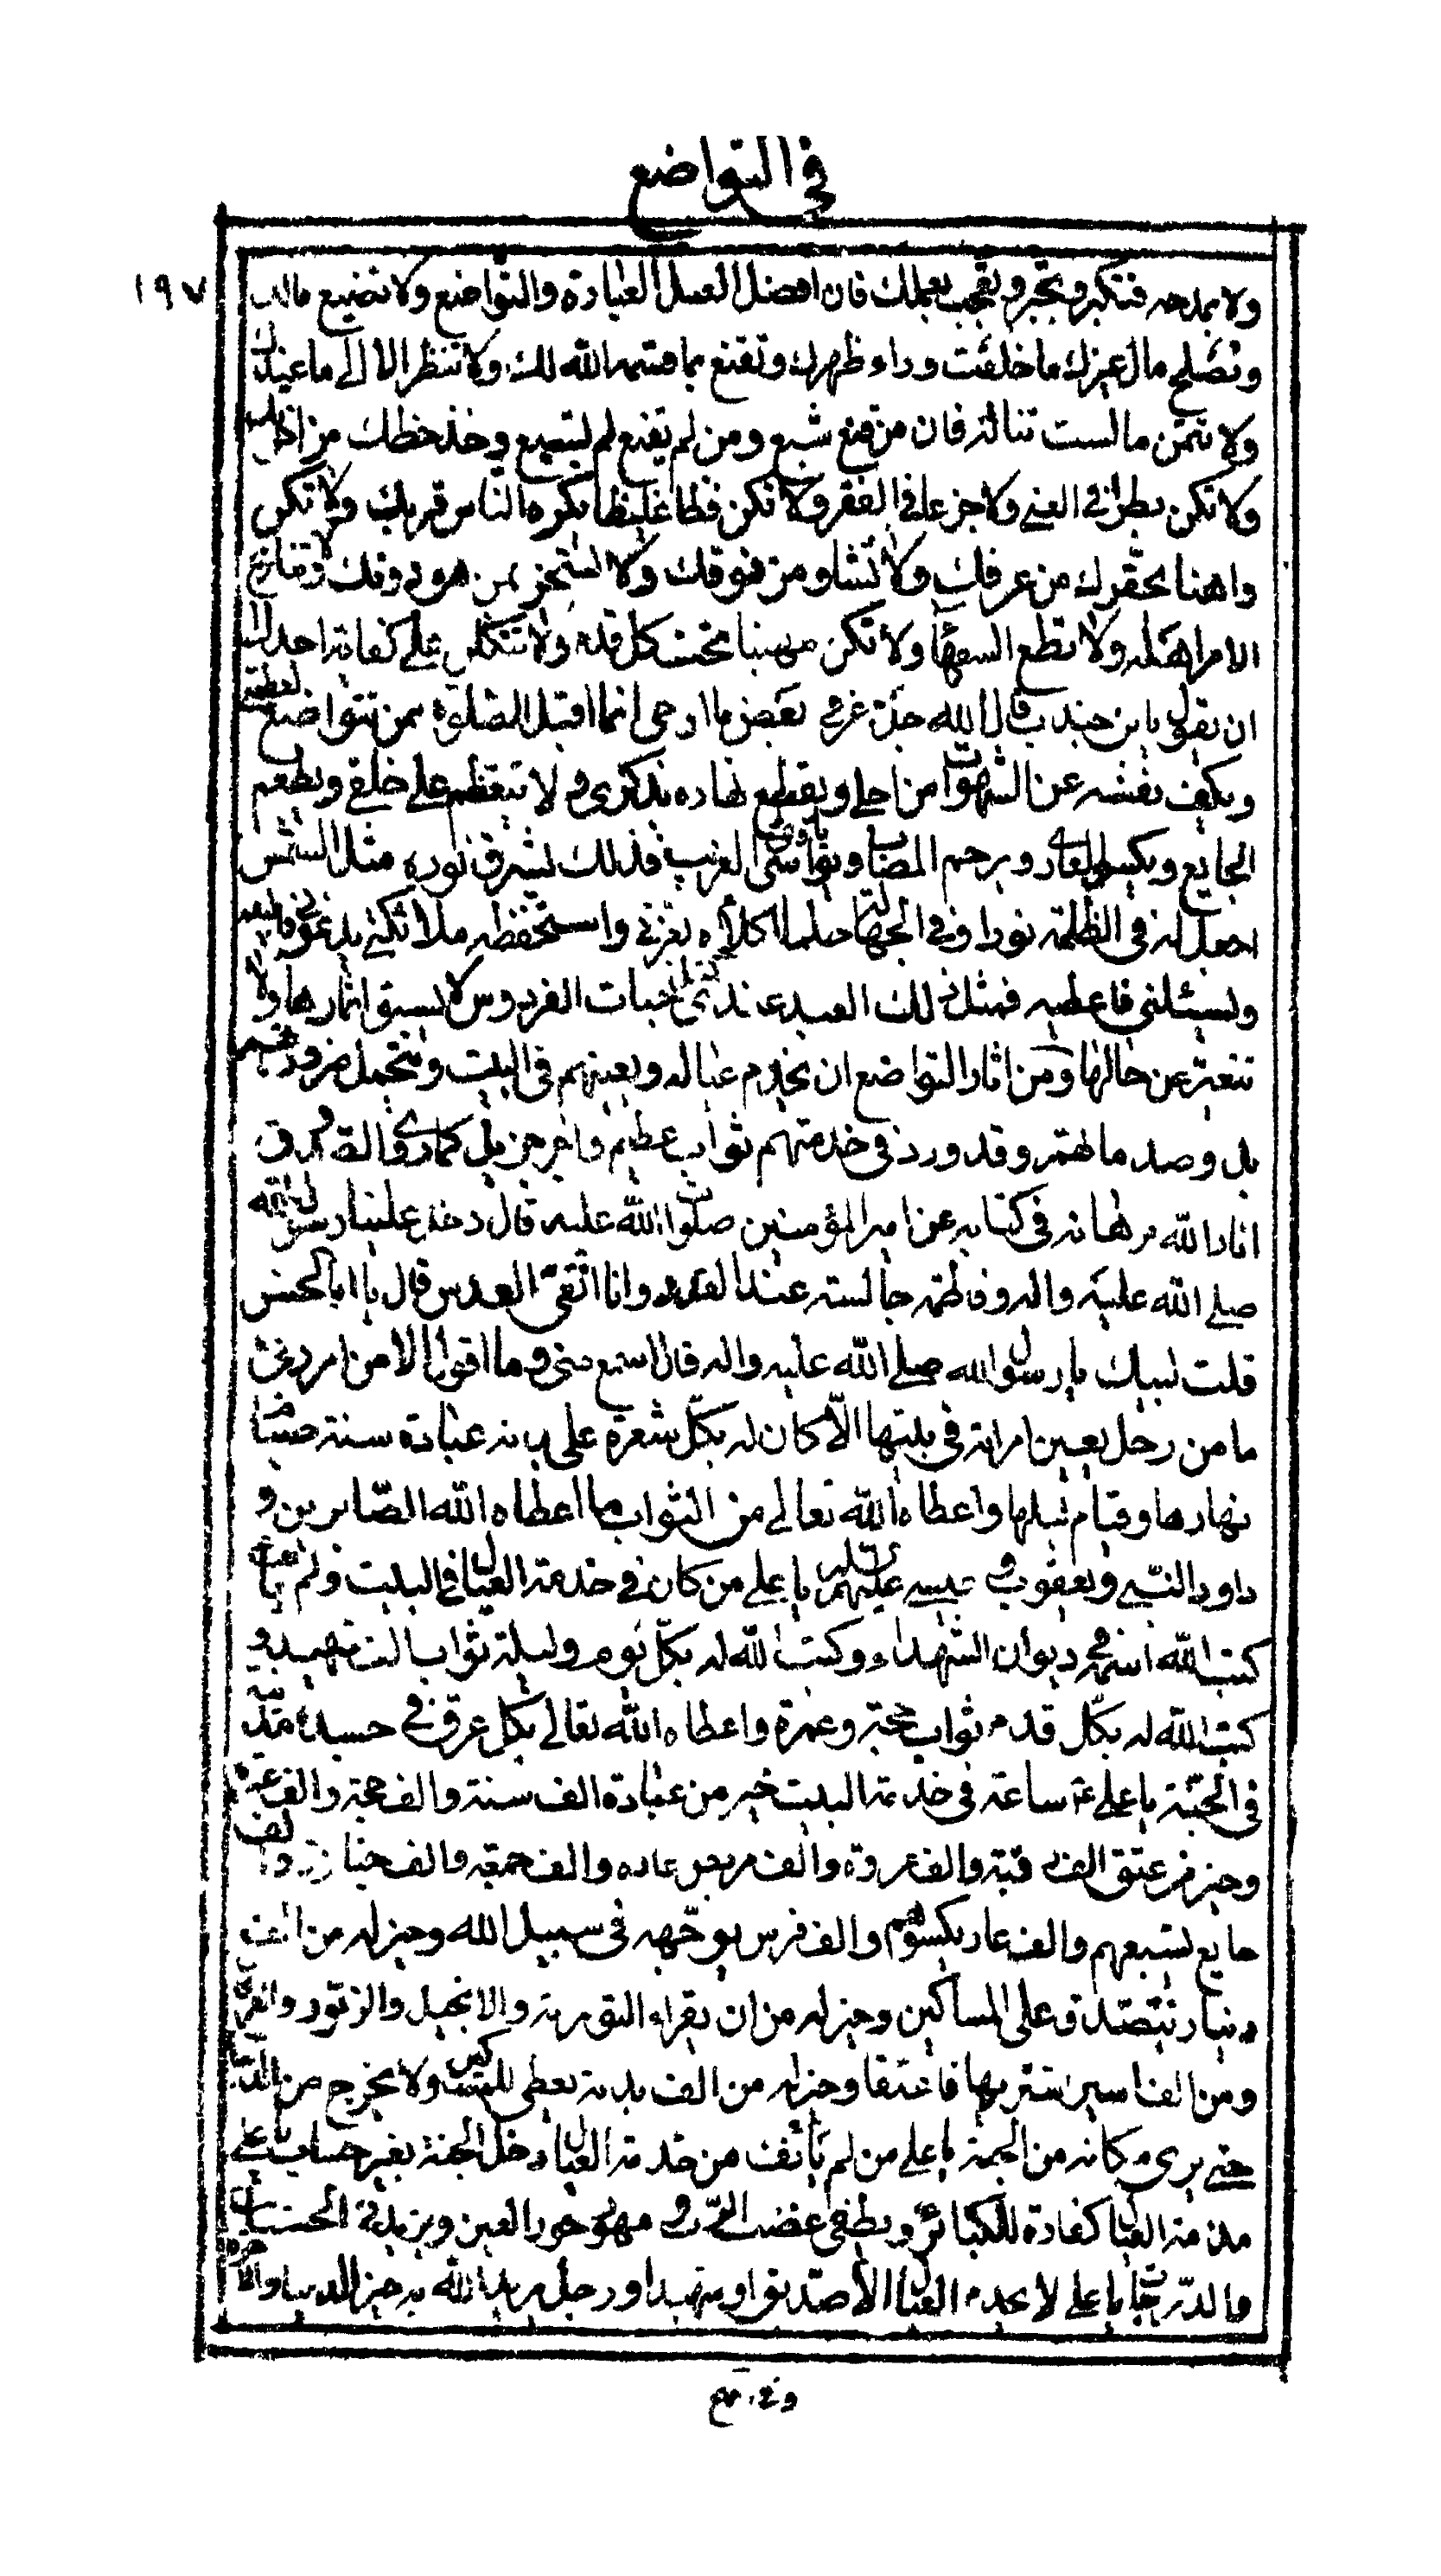 في التواضع
١٩٧
ولا بمدحه فتتكبر وتجبر وتعجب بعملك فان افضل العمل العبادة والتواضع ولا تضيع مالك
وتصلح مال غيرك ما خلفت وراء ظهرك وتقنع بما قسمه الله لك ولا تنظر الا الى ما عندك
ولا تتمن ما لست تناله فان من قنع شبع ومن لم يقنع لم يشبع وخذ حظك من اخرتك
ولا تكن بطرا في الغنى ولا جزعا في الفقر ولا تكن فظا غليظا يكره الناس قربك ولا تكن
واهنا يحقرك من عرفك ولا تشاو من فوقك ولا تسخر بمن هو دونك ولا تنازع
الامر اهله ولا تطع السفهاء ولا تكن مهينا تحت كل قدم ولا تتكلن على كفاية احد الى
ان يقول يا بن جندب قال الله جل وعز في بعض ما اوحى انما اقبل الصلوة ممن تتواضع لعظمتي
ويكف نفسه عن الشهوات من اجلي ويقطع نهاره بذكرى ولا يتعظم على خلقي ويطعم
الجايع ويكسو العارى ويرحم المصاب ويواسى الغريب فذلك يشرق نوره مثل الشمس
اجعل له في الظلمة نورا وفي الجهالة حلما اكلأه بعزتي واستحفظه ملائكتي يدعوني فالبيه
ويسئلني فاعطيه فمثل ذلك العبد عندي كمثل جنات الفردوس لا يسبق اثمارها ولا
تتغير عن حالها ومن اثار التواضع ان يخدم عياله ويعينهم في البيت ويتحمل
بل وصد ما لهم وقد ورد في خدمتهم ثواب عظيم واجر جزيل كما روى الصدوق
انار الله برهانه في كتابه عن امير المؤمنين صلوات الله عليه قال دخل علينا رسول الله
صلى الله عليه واله وفاطمة جالسته عند القدر وانا انقى العدس قال يا ابا الحسن
قلت لبيك يا رسول الله صلى الله عليه واله قال اسمع منى وما اقول الا من امر ربى
ما من رجل يعين امراته في بيتها الا كان له بكل شعرة على بدنه عبادة سنة صيام
نهارها وقيام ليلها واعطاه الله تعالى من الثواب ما اعطاه الله الصابرين و
داود النبي ويعقوب وعيسى عليهم السلام يا على من كان في خدمة العيال في البيت ولم يأنف
كتب الله اسمه في ديوان الشهداء وكتب الله له بكل يوم وليلة ثواب الف شهيد و
كتب الله له بكل قدم ثواب حجة وعمرة واعطاه الله تعالى بكل عرق في جسده مدينة
في الجنة يا على ساعة في خدمة البيت خير من عبادة الف سنة والف حجة والف عمرة
وخير من عتق الف رقبة والف غزوة والف مريض عاده والف جمعة والف جنازة والف
جايع يشبعهم والف عار يكسوهم والف فرس يوجهه في سبيل الله وخير له من الف
دينار يتصدق على المساكين وخير له من ان يقراء التورية والانجيل والزبور والفرقان
ومن الف اسير اشتريها فاعتقا وخير له من الف بدنة يعطى للمساكين ولا يخرج من الدنيا
حتى يرى مكانه من الجنة يا على من لم يأنف من خدمة العيال دخل الجنة بغير حساب يا على
خدمة العيال كفارة للكبائر ويطفى غضب الرب ومهور حور العين ويزيد في الحسنات
والدرجات يا على لا يخدم العيال الا صديق او شهيد او رجل يريد الله به خير الدنيا والاخرة